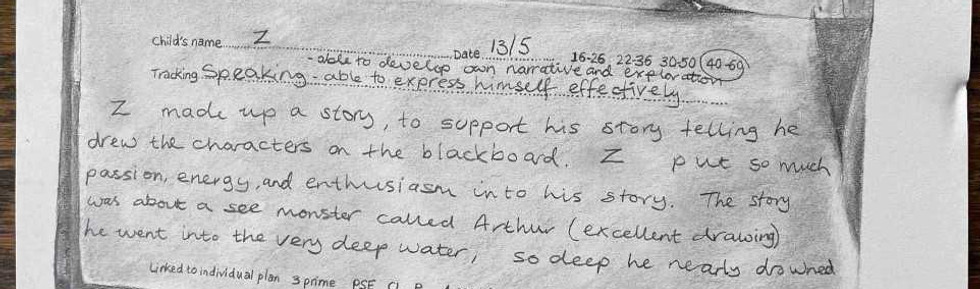 Child's name Z Date 13/5 16-26 22-36 30-50 40-60
- able to develop own narrative and exploration
Tracking Speaking - able to express himself effectively
Z made up a story, to support his story telling he
drew the characters on the blackboard. Z put so much
passion, energy, and enthusiasm into his story. The story
was about a see monster called Arthur (excellent drawing)
he went into the very deep water, so deep he nearly drowned
Linked to individual plan 3 prime PSE CL P